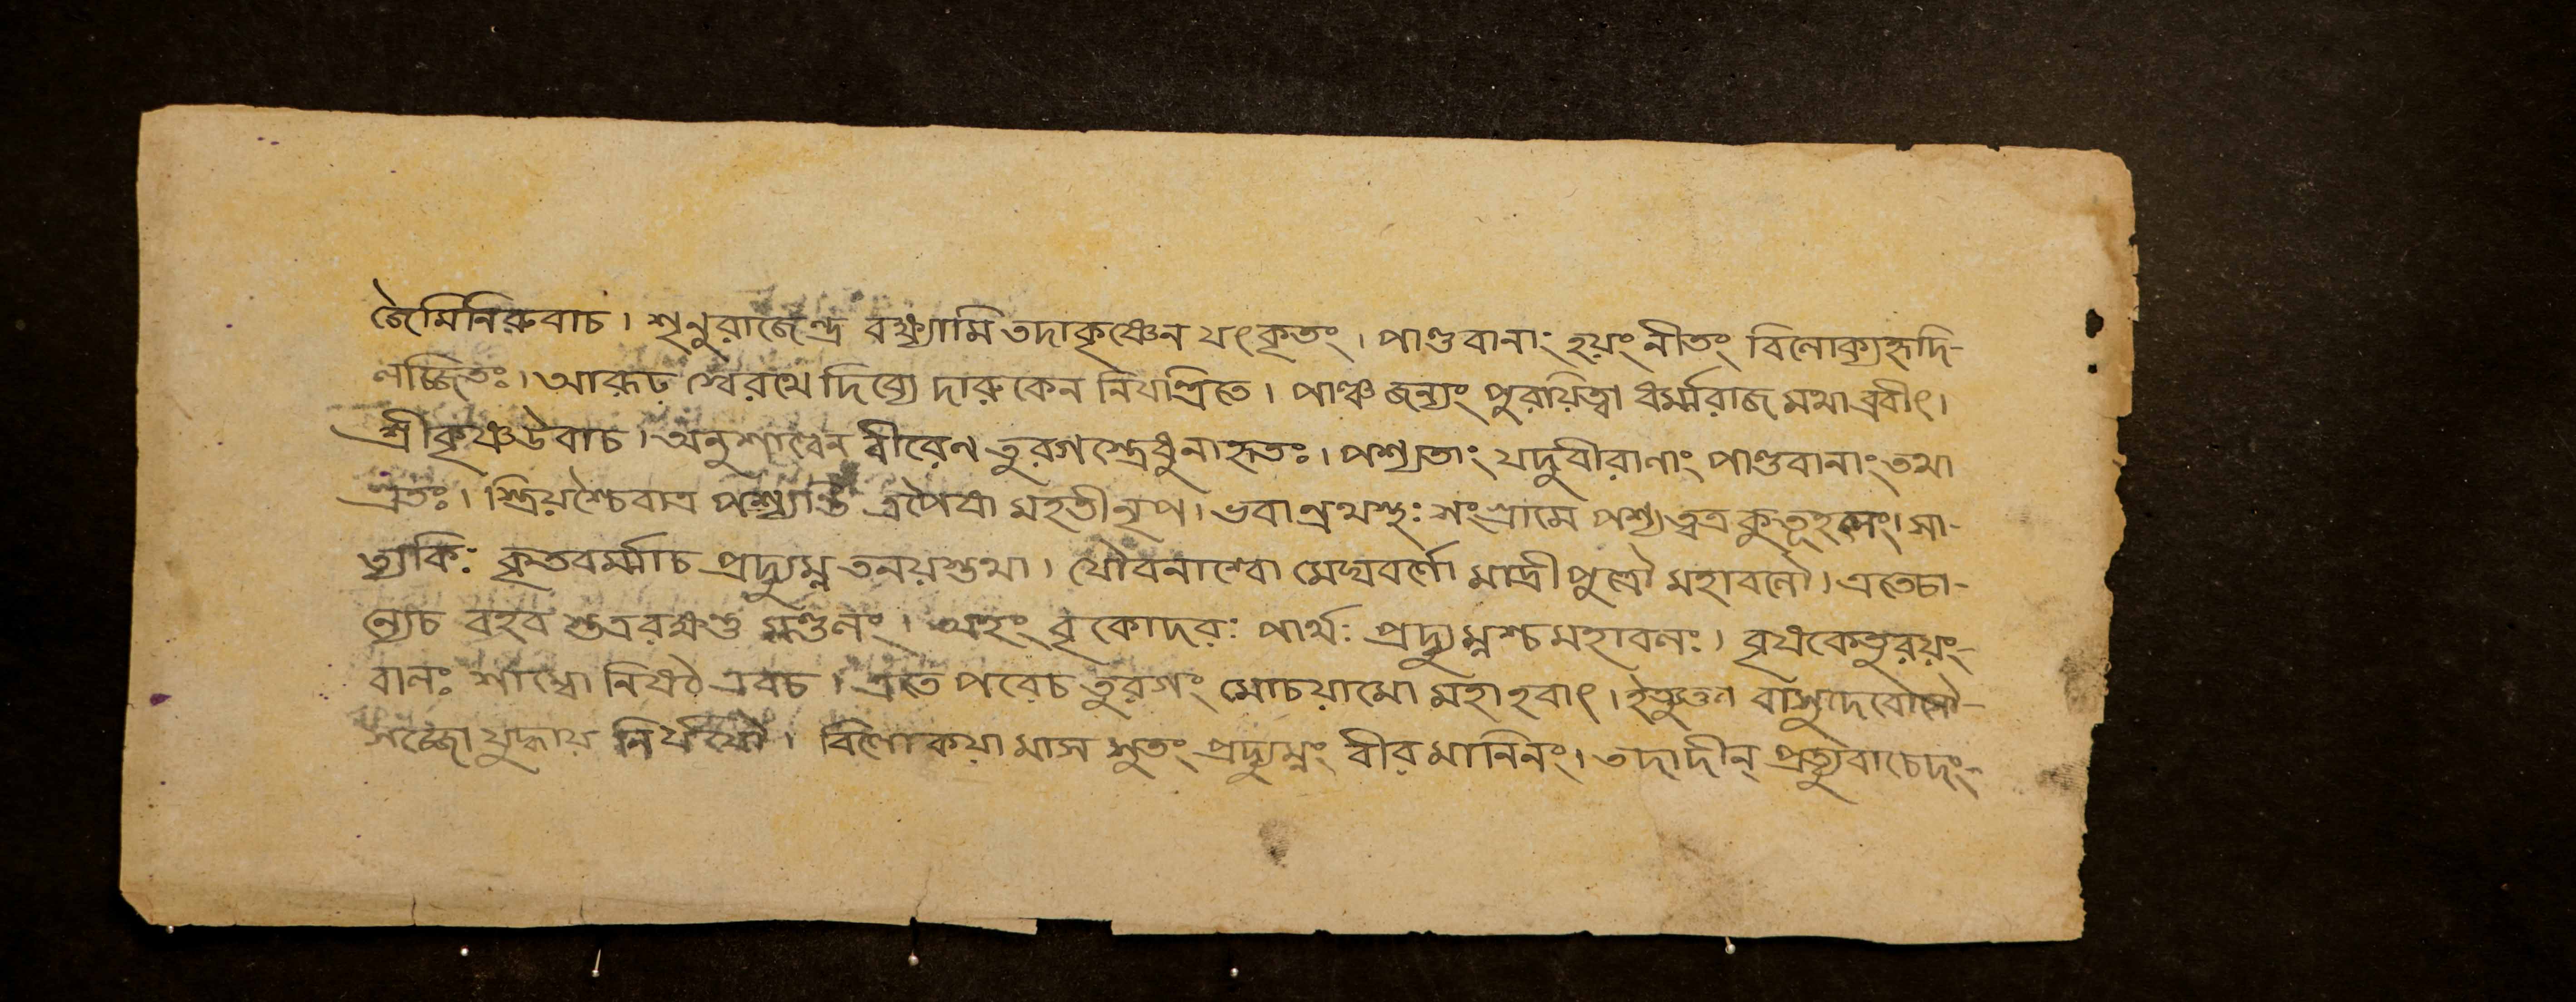 জৈমিনিরুবাচ। শৃনুরাজেন্দ্র বক্ষ্যামি তদাকৃষ্ণেন যৎকৃতং। পাণ্ডবানাং হয়ং নীতং বিলোক্যহৃদি-
লজ্জিতঃ। আরূঢ় শ্বেরথে দিব্যে দারুকেন নিযন্ত্রিতে। পাঞ্চজন্যং পুরায়িত্বা ধর্ম্মরাজ মথাব্রবীৎ।
শ্রীকৃষ্ণউবাচ। অনুশাল্বেন বীরেণ তুরগস্ত্রেধুনাহৃতঃ। পশ্যতাং যদুবীরাণাং পাণ্ডবানাং তথা
গ্রতঃ। স্ত্রিয়শ্চৈবাত্র পশ্যন্তি ত্রপৈষা মহতীনৃপ। ভবান্রথস্থঃ সংগ্রামে পশ্যত্বত্র কুতূহলং। সা-
ত্যকিঃ কৃতবর্ম্মাচ প্রদ্যুম্ন তনয়স্তথা। যৌবনাশ্বো মেঘবর্ণো মাদ্রীপুত্রৌ মহাবলৌ। এতেচা-
ন্যেচ বহব স্তত্ররক্ষন্তু মণ্ডলং। অহং বৃকোদরঃ পার্থঃ প্রদ্যুম্নশ্চমহাবলঃ। বৃষকেতুরয়ং-
বালঃ শাম্বো নিষঠ এবচ। এতে পরেচ তুরগং মোচয়ামো মহাহবাৎ। ইত্যুক্তা বাসুদেবোসৌ-
সজ্জো যুদ্ধায় নির্যযৌ। বিলোকয়ামাস সুতং প্রদ্যুম্নং বীরমানিনং। তদাদীন্ প্রত্যুবাচেদং-